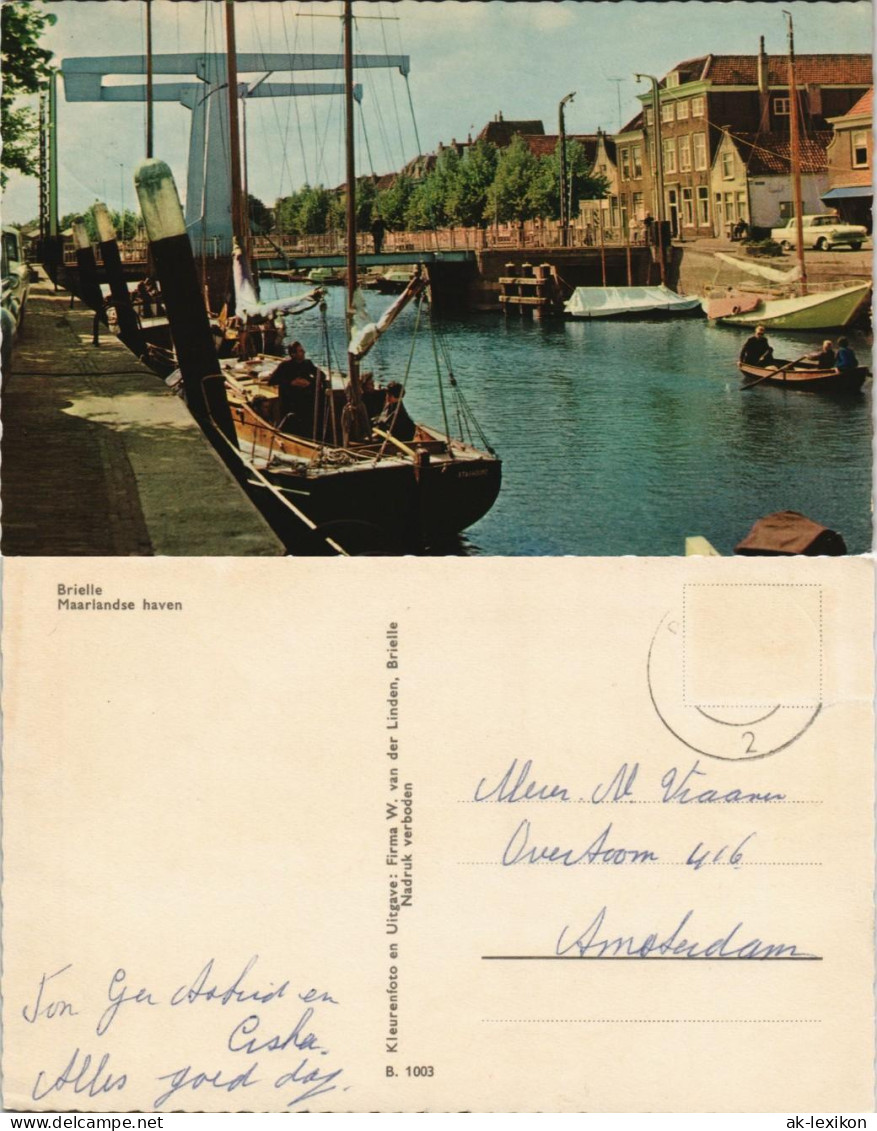 Brielle
Maarlandse haven
Kleurenfoto en Uitgave: Firma W. van der Linden, Brielle
Nadruk verboden
B. 1003
2
Mevr. N. Vraaner
Overtoom 416
Amsterdam
Ton Ger Astrid en
Ciska.
Alles goed dag.
ak-lexikon